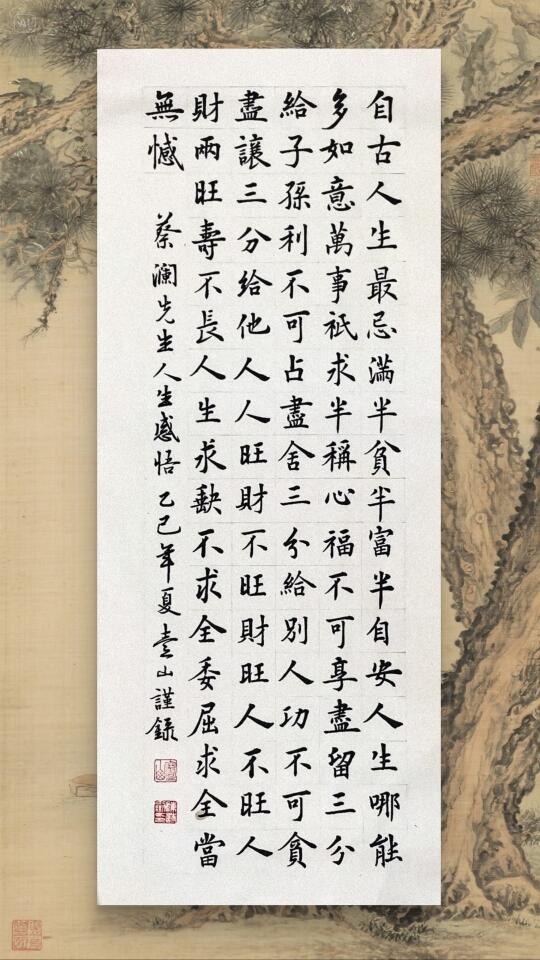 自古人生最忌滿半貧半富半自安人生哪能
多如意萬事祇求半稱心福不可享盡留三分
給子孫利不可占盡舍三分給別人功不可貪
盡讓三分給他人人旺財不旺財旺人不旺人
財兩旺壽不長人生求缺不求全委屈求全當
無憾 蔡澜先生人生感悟乙巳年夏山謹録